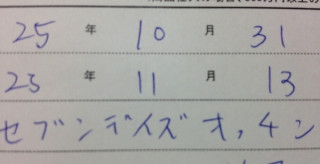 25年10月31
25年11月13
セブンデイズオッチン